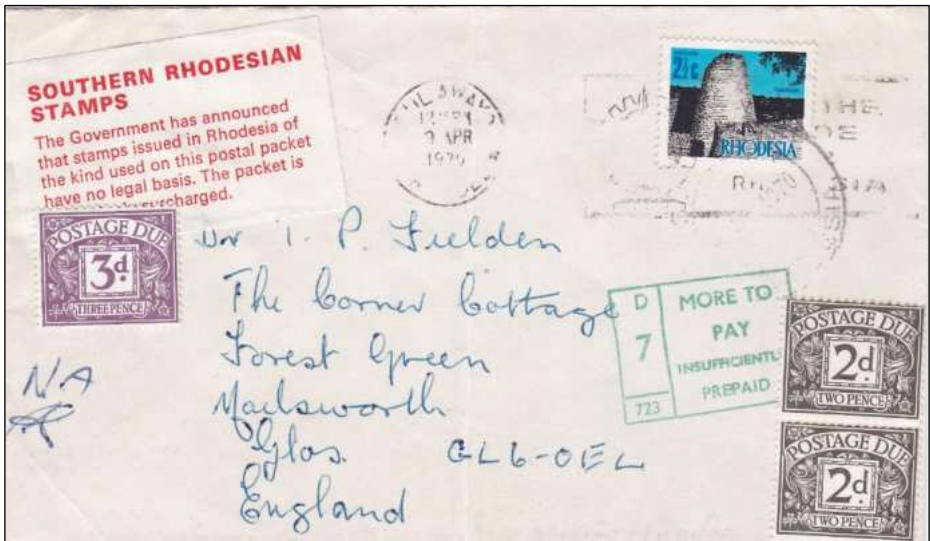 SOUTHERN RHODESIAN
STAMPS
The Government has announced
that stamps issued in Rhodesia of
the kind used on this postal packet
have no legal basis. The packet is
surcharged.
POSTAGE DUE
3d.
THREE PENCE
9 APR
2½c
RHODESIA
THE
I. P. Fielden
The Corner Cottage
Forest Green
Nailsworth
Glos. GL6-0EL
England
NA
D
7
723
MORE TO
PAY
INSUFFICIENTLY
PREPAID
POSTAGE DUE
2d.
TWO PENCE
POSTAGE DUE
2d.
TWO PENCE